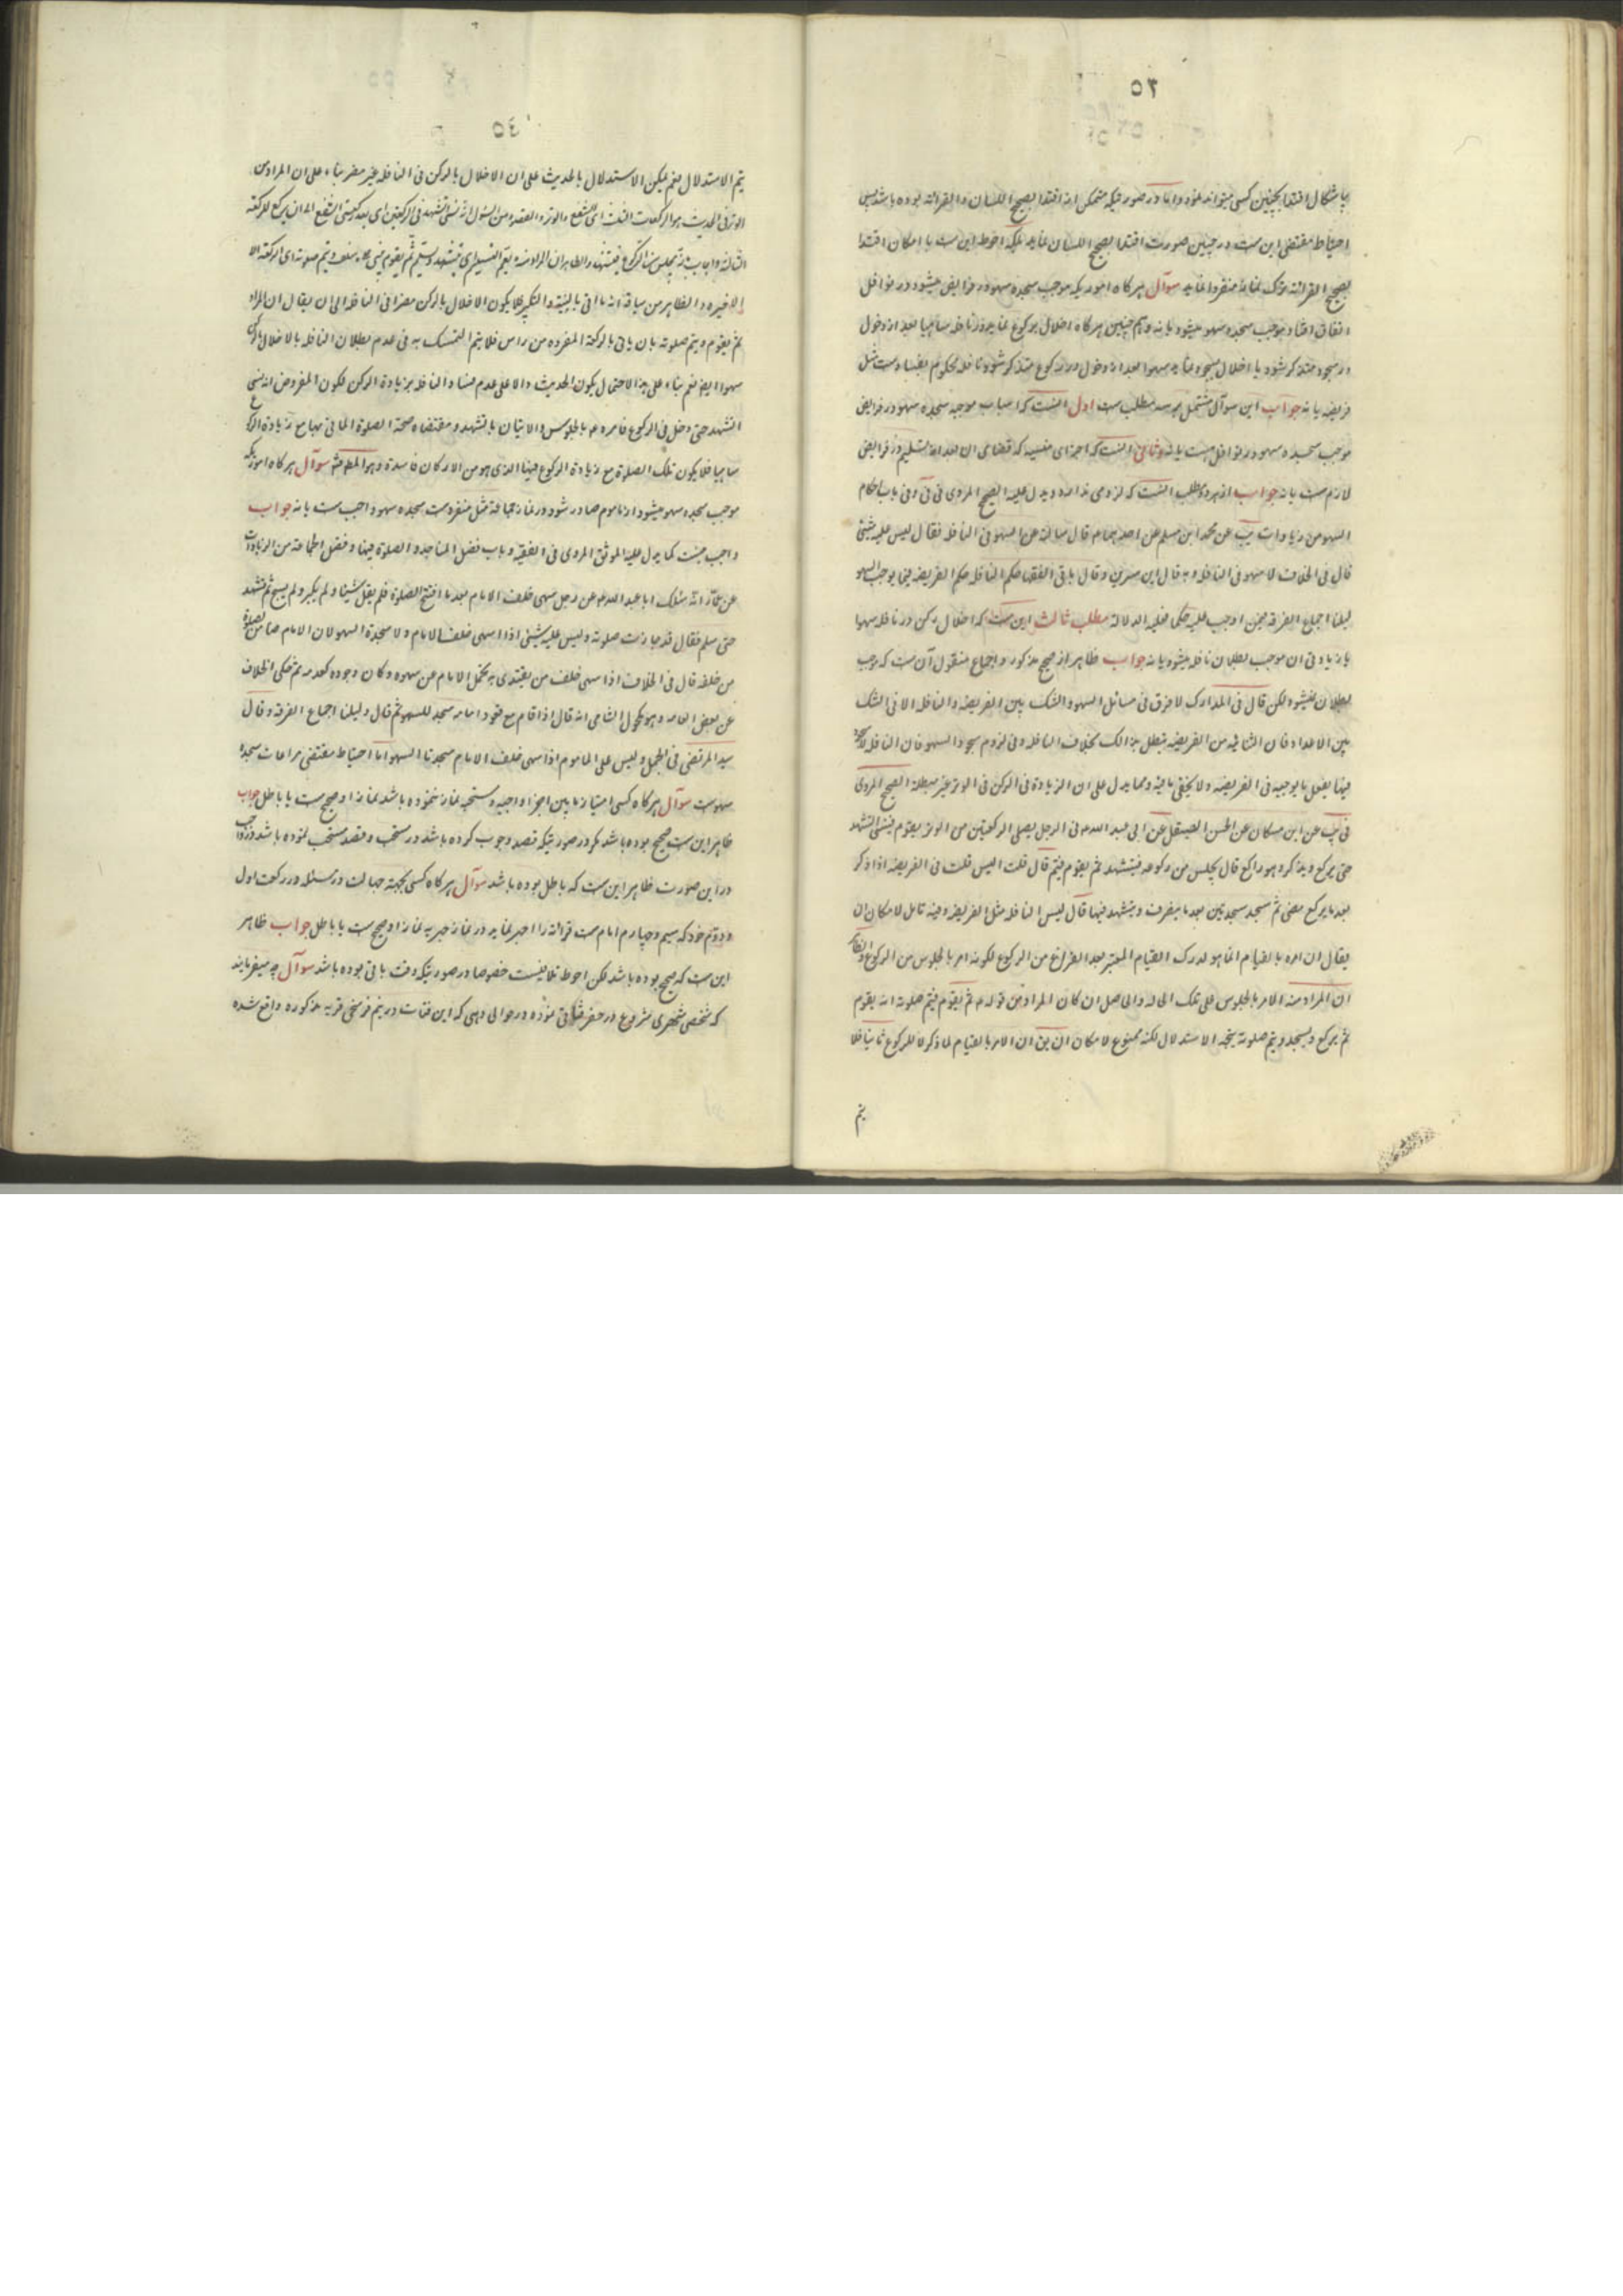 ۳۵
باشکال اقتدا بچنین کسی میتواند نمود و اما در صورتیکه متمکن از اقتدا بصحیح اللسان و القرائة بوده باشد پس
احتیاط مقتضی این ست در چنین صورت اقتدا بصحیح اللسان نماید بلکه احوط این ست با امکان اقتدا
بصحیح القرائة ترک نماز منفردا نماید سوآل هرکاه اموریکه موجب سجده سهو در فرایض میشود در نوافل
اتفاق افتاد موجب سجده سهو میشود یا نه و هم چنین هرکاه اخلال برکوع نماید در نافله ساهیا بعد از دخول
در سجود متذکر شود یا اخلال بسجود نماید سهوا بعد از دخول در رکوع متذکر شود نافله محکوم بفساد ست مثل
فریضه یا نه جواب این سوآل مشتمل بر سه مطلب ست اول اینست که اسباب موجبه سجده سهو در فرایض
موجب سجده سهو در نوافل هست یا نه و ثانی اینست که اجزای منسیه که قضای ان بعد از تسلیم در فرایض
لازم ست یا نه جواب از هر دو مطلب اینست که لزومی ندارد و یدل علیه الصحیح المروی فی فی و فی باب احکام
السهو من زیادات یب عن محمد ابن مسلم عن احدهما م قال سالته عن السهو فی النافله فقال لیس علیه شیئ
قال فی الخلاف لا سهو فی النافله و به قال ابن سیرین و قال باقی الفقها حکم النافله حکم الفریضه فیما یوجب السهو
دلیلنا اجماع الفرقه فمن اوجب علیه حکما فعلیه الدلالة مطلب ثالث این ست که اخلال رکن در نافله سهوا
یا زیادتی ان موجب بطلان نافله میشود یا نه جواب ظاهر از صحیح مذکور و اجماع منقول آن ست که موجب
بطلان نمیشود لکن قال فی المدارک لا فرق فی مسائل السهو و الشک بین الفریضه و النافله الا فی الشک
بین الاعداد فان الثنائیه من الفریضه تبطل بذالک بخلاف النافله و فی لزوم سجود السهو فان النافله لا سجود
فیها بفعل ما یوجبه فی الفریضه و لا یخفی ما فیه و مما یدل علی ان الزیادة فی الرکن فی الوتر غیر مبطلة الصحیح المروی
فی یب عن ابن مسکان عن الحسن الصیقل عن ابی عبد الله م فی الرجل یصلی الرکعتین من الوتر یقوم فینسی التشهد
حتی یرکع و یذکر و هو راکع قال یجلس من رکوعه فیتشهد ثم یقوم فیتم قال قلت الیس قلت فی الفریضه اذا ذکر
بعد ما یرکع مضی ثم سجد سجدتین بعد ما ینصرف و یتشهد فیها قال لیس النافله مثل الفریضه و فیه تامل لامکان ان
یقال ان امره بالقیام انما هو لدرک القیام المعتبر بعد الفراغ من الرکوع لکونه امر بالجلوس من الرکوع و الظاهر
ان المراد منه الامر بالجلوس علی تلک الحاله و الحاصل ان کان المراد من قوله م ثم یقوم فیتم صلوته انه یقوم
ثم یرکع و یسجد و یتم صلوته یتجه الاستدلال لکنه ممنوع لامکان ان یق ان الامر بالقیام لما ذکر لا للرکوع ثانیا فلا
یتم
یتم الاستدلال نعم یمکن الاستدلال بالحدیث علی ان الاخلال بالرکن فی النافله غیر مضر بناء علی ان المراد من
الوتر فی الحدیث هو الرکعات الثلث ای الشفع و الوتر و المقصود من السئول انه نسی التشهد فی الرکعتین ای بعد رکعتی الشفع الی ان یرکع للرکعة
الاخیره و الظاهر من سیاقه انه ما اتی بالنیة و التکبیر فلا یکون الاخلال بالرکن مضرا فی النافله الی ان یقال ان المراد
ثم یقوم و یتم صلوته بان یاتی بالرکعة المفرده من راس فلا یتم التمسک به فی عدم بطلان النافله بالاخلال بالرکن
سهوا ایضا نعم بناء علی هذا الاحتمال یکون الحدیث دالا علی عدم فساد النافله بزیادة الرکن لکون المفروض انه نسی
التشهد حتی دخل فی الرکوع فامره م بالجلوس و الاتیان بالتشهد و مقتضاه صحة الصلوة الماتی بها مع زیادة الرکوع
ساهیا فلا یکون تلک الصلوة مع زیادة الرکوع فیها الذی هو من الارکان فاسدة و هو المط سوآل هرکاه اموریکه
موجب سجده سهو میشود از ماموم صادر شود در نماز جماعة مثل منفرد ست سجده سهو واجب ست یا نه جواب
واجب نیست کما یدل علیه الموثق المروی فی الفقیه و باب فضل المساجد و الصلوة فیها و فضل الجماعة من الزیادات
عن عمار انه سئل ابا عبد الله م عن رجل سهی خلف الامام بعد ما افتتح الصلوة فلم یقل شیئا و لم یکبر و لم یسبح و لم یتشهد
حتی سلم فقال قد جازت صلوته و لیس علیه شیئ اذا سهی خلف الامام و لا سجدة السهو لان الامام ضامن لصلوة
من خلفه قال فی الخلاف اذا سهی خلف من یقتدی به تحمل الامام عن سهوه و کان وجوده کعدمه ثم حکی الخلاف
عن بعض العامه و هو مکحول الشامی انه قال اذا قام مع قعود امامه سجد للسهو ثم قال دلیلنا اجماع الفرقه و قال
سید المرتضی فی الجمل و لیس علی الماموم اذا سهی خلف الامام سجدتا السهو اما احتیاط مقتضی مراعات سجده
سهو ست سوآل هرکاه کسی امتیاز مابین اجزا واجبه و مستحبه نماز ننموده باشد نماز او صحیح ست یا باطل جواب
ظاهر این ست صحیح بوده باشد مکر در صورتیکه قصد وجوب کرده باشد در مستحب و قصد مستحب نموده باشد در واجب
در این صورت ظاهر این ست که باطل بوده باشد سوآل هرکاه کسی بجهة جهالت در مسئله در رکعت اول
و دوم خود که سیم و چهارم امام ست قرائة را اجهر نماید در نماز جهریه نماز او صحیح ست یا باطل جواب ظاهر
این ست که صحیح بوده باشد لکن احوط تلافیست خصوصا در صورتیکه وقت باقی بوده باشد سوآل چه میفرمایند
که شخصی شهری شروع در حفر قناتی نموده در حوالی دهی که این قنات در نیم فرسخی قریه مذکوره واقع شده